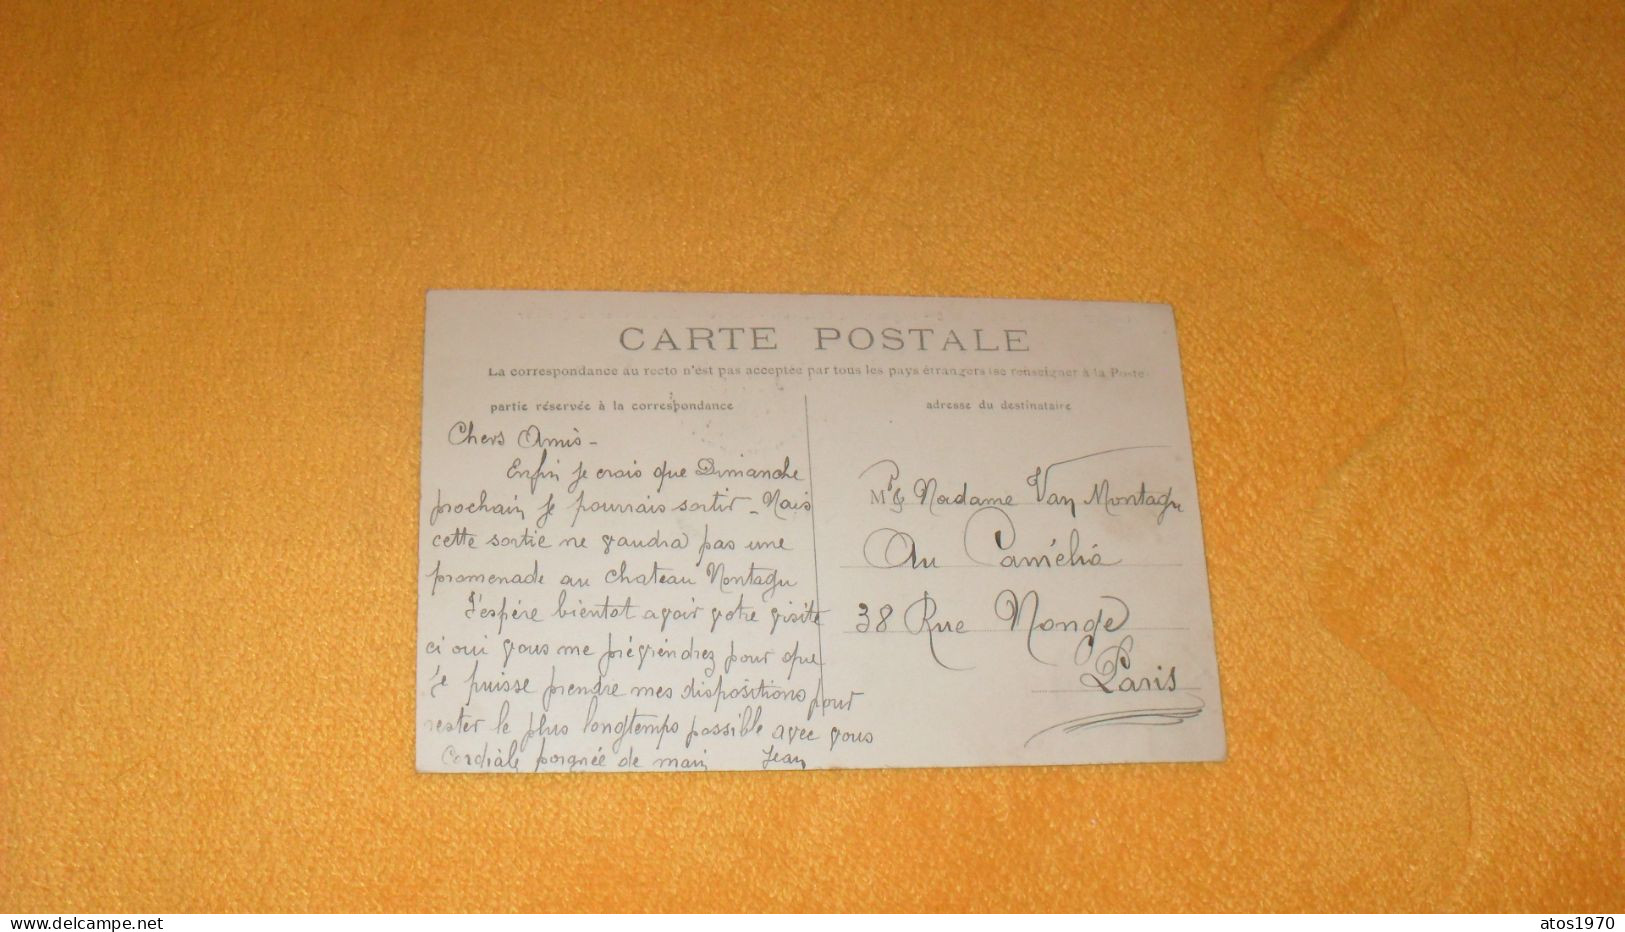 CARTE POSTALE
La correspondance au recto n'est pas acceptée par tous les pays étrangers (se renseigner à la Poste
partie réservée à la correspondance
adresse du destinataire
Chers Amis -
Enfin je crois que Dimanche
prochain je pourrais sortir - Mais
cette sortie ne vaudra pas une
promenade au chateau Montagu
J'espère bientot avoir votre visite
ci oui vous me préviendrez pour que
je puisse prendre mes dispositions pour
rester le plus longtemps possible avec vous
Cordiale poignée de main Jean
Mr & Madame Van Montagu
Au Camélia
38 Rue Monge
Paris
www.delcampe.net
atos1970